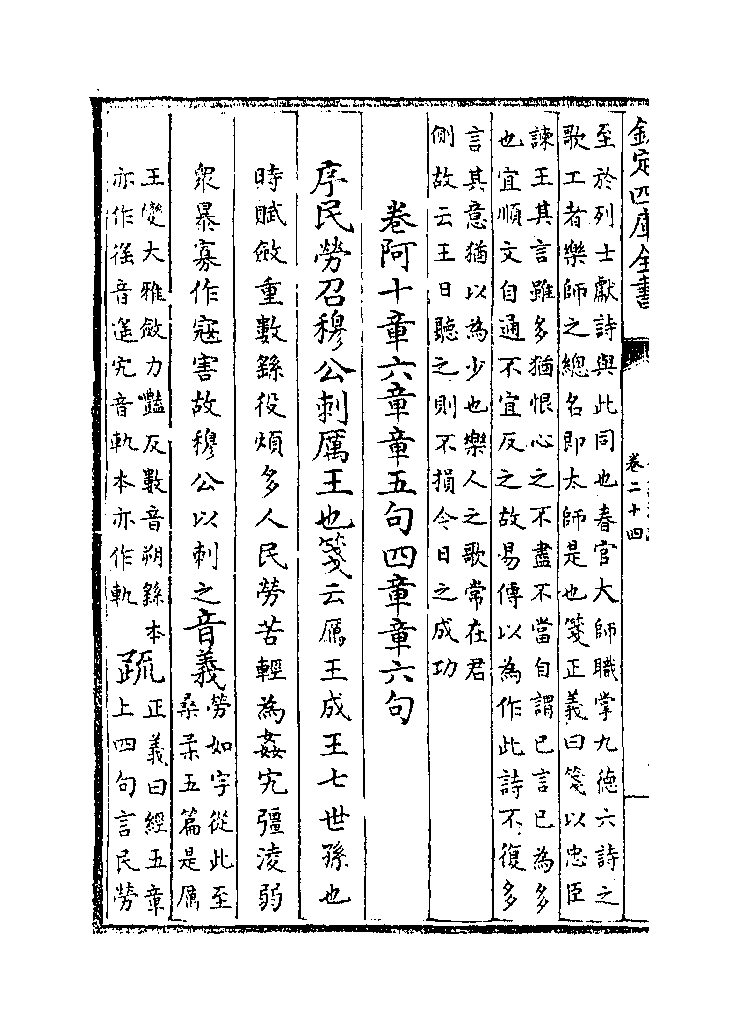 欽定四庫全書
卷二十四
至於列士獻詩與此同也春官大師職掌九德六詩之
歌工者樂師之總名即太師是也箋正義曰箋以忠臣
諫王其言雖多猶恨心之不盡不當自謂已言已為多
也宜順文自通不宜反之故易傳以為作此詩不復多
言其意猶以為少也樂人之歌常在君
側故云王日聽之則不損今日之成功
卷阿十章六章章五句四章章六句
序民勞召穆公刺厲王也箋云厲王成王七世孫也
時賦斂重數繇役煩多人民勞苦輕為姦宄彊淩弱
衆暴寡作寇害故穆公以刺之音義
勞如字從此至
桑柔五篇是厲
王變大雅斂力豔反數音朔繇本
亦作徭音遥宄音軌本亦作軌
疏
正義曰經五章
上四句言民勞